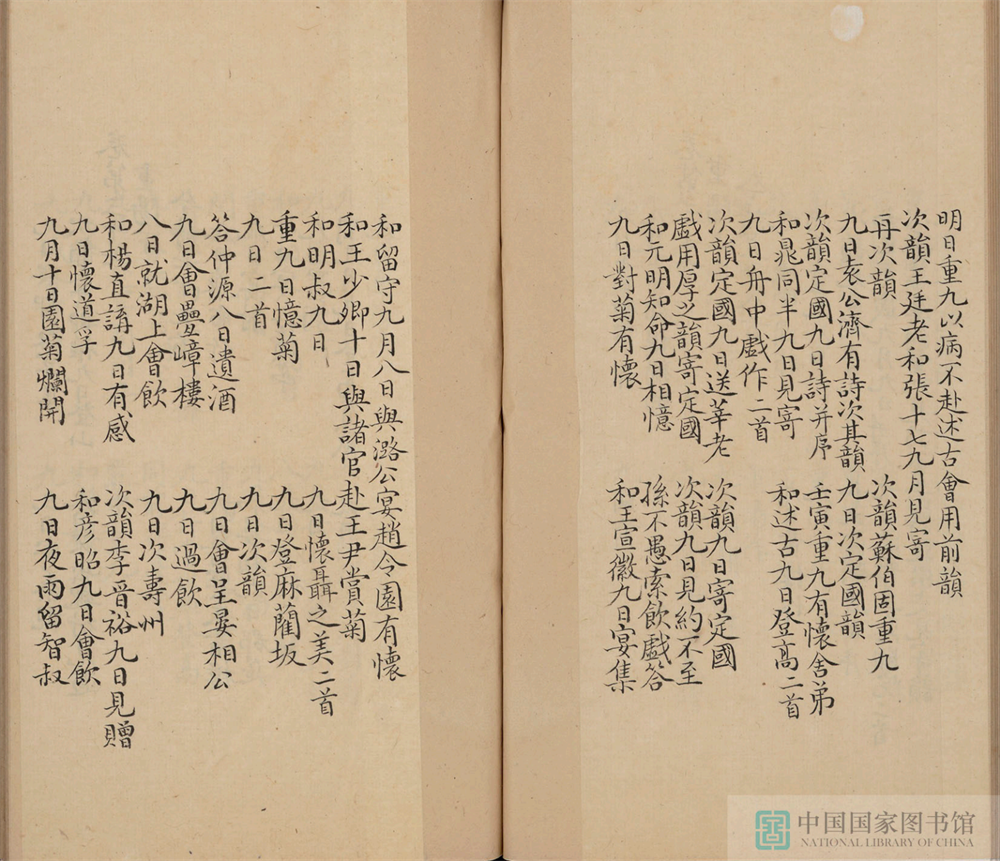 明日重九以病不赴述古會用前韻
次韻王廷老和張十七九月見寄
再次韻　次韻蘇伯固重九
九日袁公濟有詩次其韻　九日次定國韻
次韻定國九日詩并序　壬寅重九有懷舍弟
和晁同半九日見寄　和述古九日登高二首
九日舟中戲作二首
次韻定國九日送莘老　次韻九日寄定國
戲用厚之韻寄定國　次韻九日見約不至
和元明知命九日相憶　孫不愚索飲戲答
九日對菊有懷　和王宣徽九日宴集
和留守九月八日與潞公宴趙令園有懷
和王少卿十日與諸官赴王尹賞菊
和明叔九日　九日懷聶之美二首
重九日憶菊　九日登麻藺坂
九日二首　九日次韻
答仲源八日遺酒　九日會呈晏相公
九日會疊嶂樓　九日過飲
八日就湖上會飲　九日次壽州
和楊直講九日有感　次韻李晉裕九日見贈
九日懷道孚　和彥昭九日會飲
九月十日園菊爛開　九日夜雨留智叔
中国国家图书馆
NATIONAL LIBRARY OF CHINA